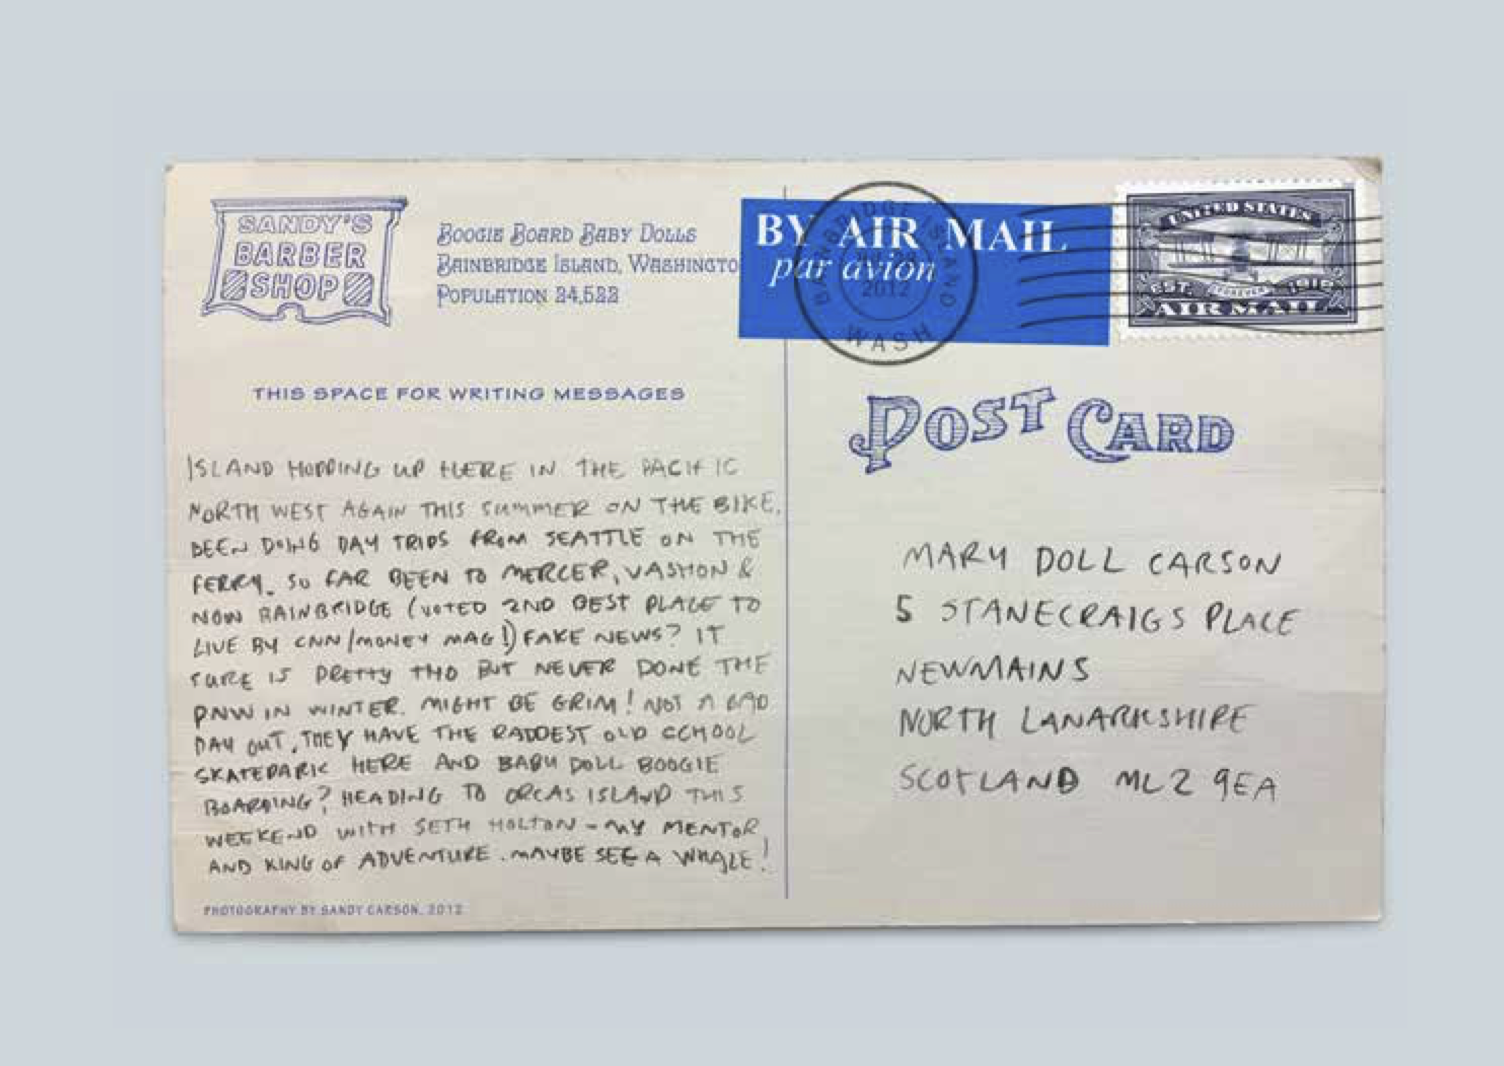 SANDY'S
BARBER
SHOP
BOOGIE BOARD BABY DOLLS
BAINBRIDGE ISLAND, WASHINGTO
POPULATION 24,522
BY AIR MAIL
par avion
BAINBRIDGE ISLAND
2012
WASH
UNITED STATES
EST. FOREVER 1918
AIR MAIL
THIS SPACE FOR WRITING MESSAGES
POST CARD
ISLAND HOPPING UP HERE IN THE PACIFIC
NORTH WEST AGAIN THIS SUMMER ON THE BIKE.
BEEN DOING DAY TRIPS FROM SEATTLE ON THE
FERRY. SO FAR BEEN TO MERCER, VASHON &
NOW BAINBRIDGE (VOTED 2ND BEST PLACE TO
LIVE BY CNN/MONEY MAG!) FAKE NEWS? IT
SURE IS PRETTY THO BUT NEVER DONE THE
PNW IN WINTER. MIGHT BE GRIM! NOT A BAD
DAY OUT, THEY HAVE THE RADDEST OLD SCHOOL
SKATEPARK HERE AND BABY DOLL BOOGIE
BOARDING? HEADING TO ORCAS ISLAND THIS
WEEKEND WITH SETH HOLTON - MY MENTOR
AND KING OF ADVENTURE. MAYBE SEE A WHALE!
MARY DOLL CARSON
5 STANECRAIGS PLACE
NEWMAINS
NORTH LANARKSHIRE
SCOTLAND ML2 9EA
PHOTOGRAPHY BY SANDY CARSON, 2012